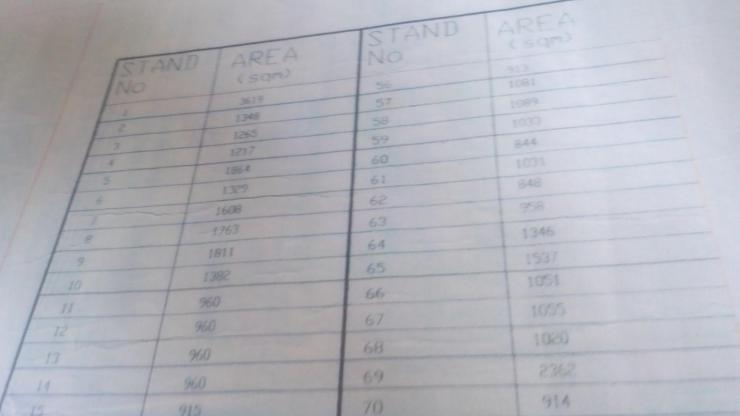 STAND No AREA (sqm) STAND No AREA (sqm)
1 3619 56 913
2 1348 57 1081
3 1265 58 1089
4 1217 59 1033
5 1864 60 844
6 1329 61 1031
7 1608 62 848
8 1763 63 958
9 1811 64 1346
10 1382 65 1537
11 960 66 1051
12 960 67 1055
13 960 68 1020
14 960 69 2362
15 915 70 914